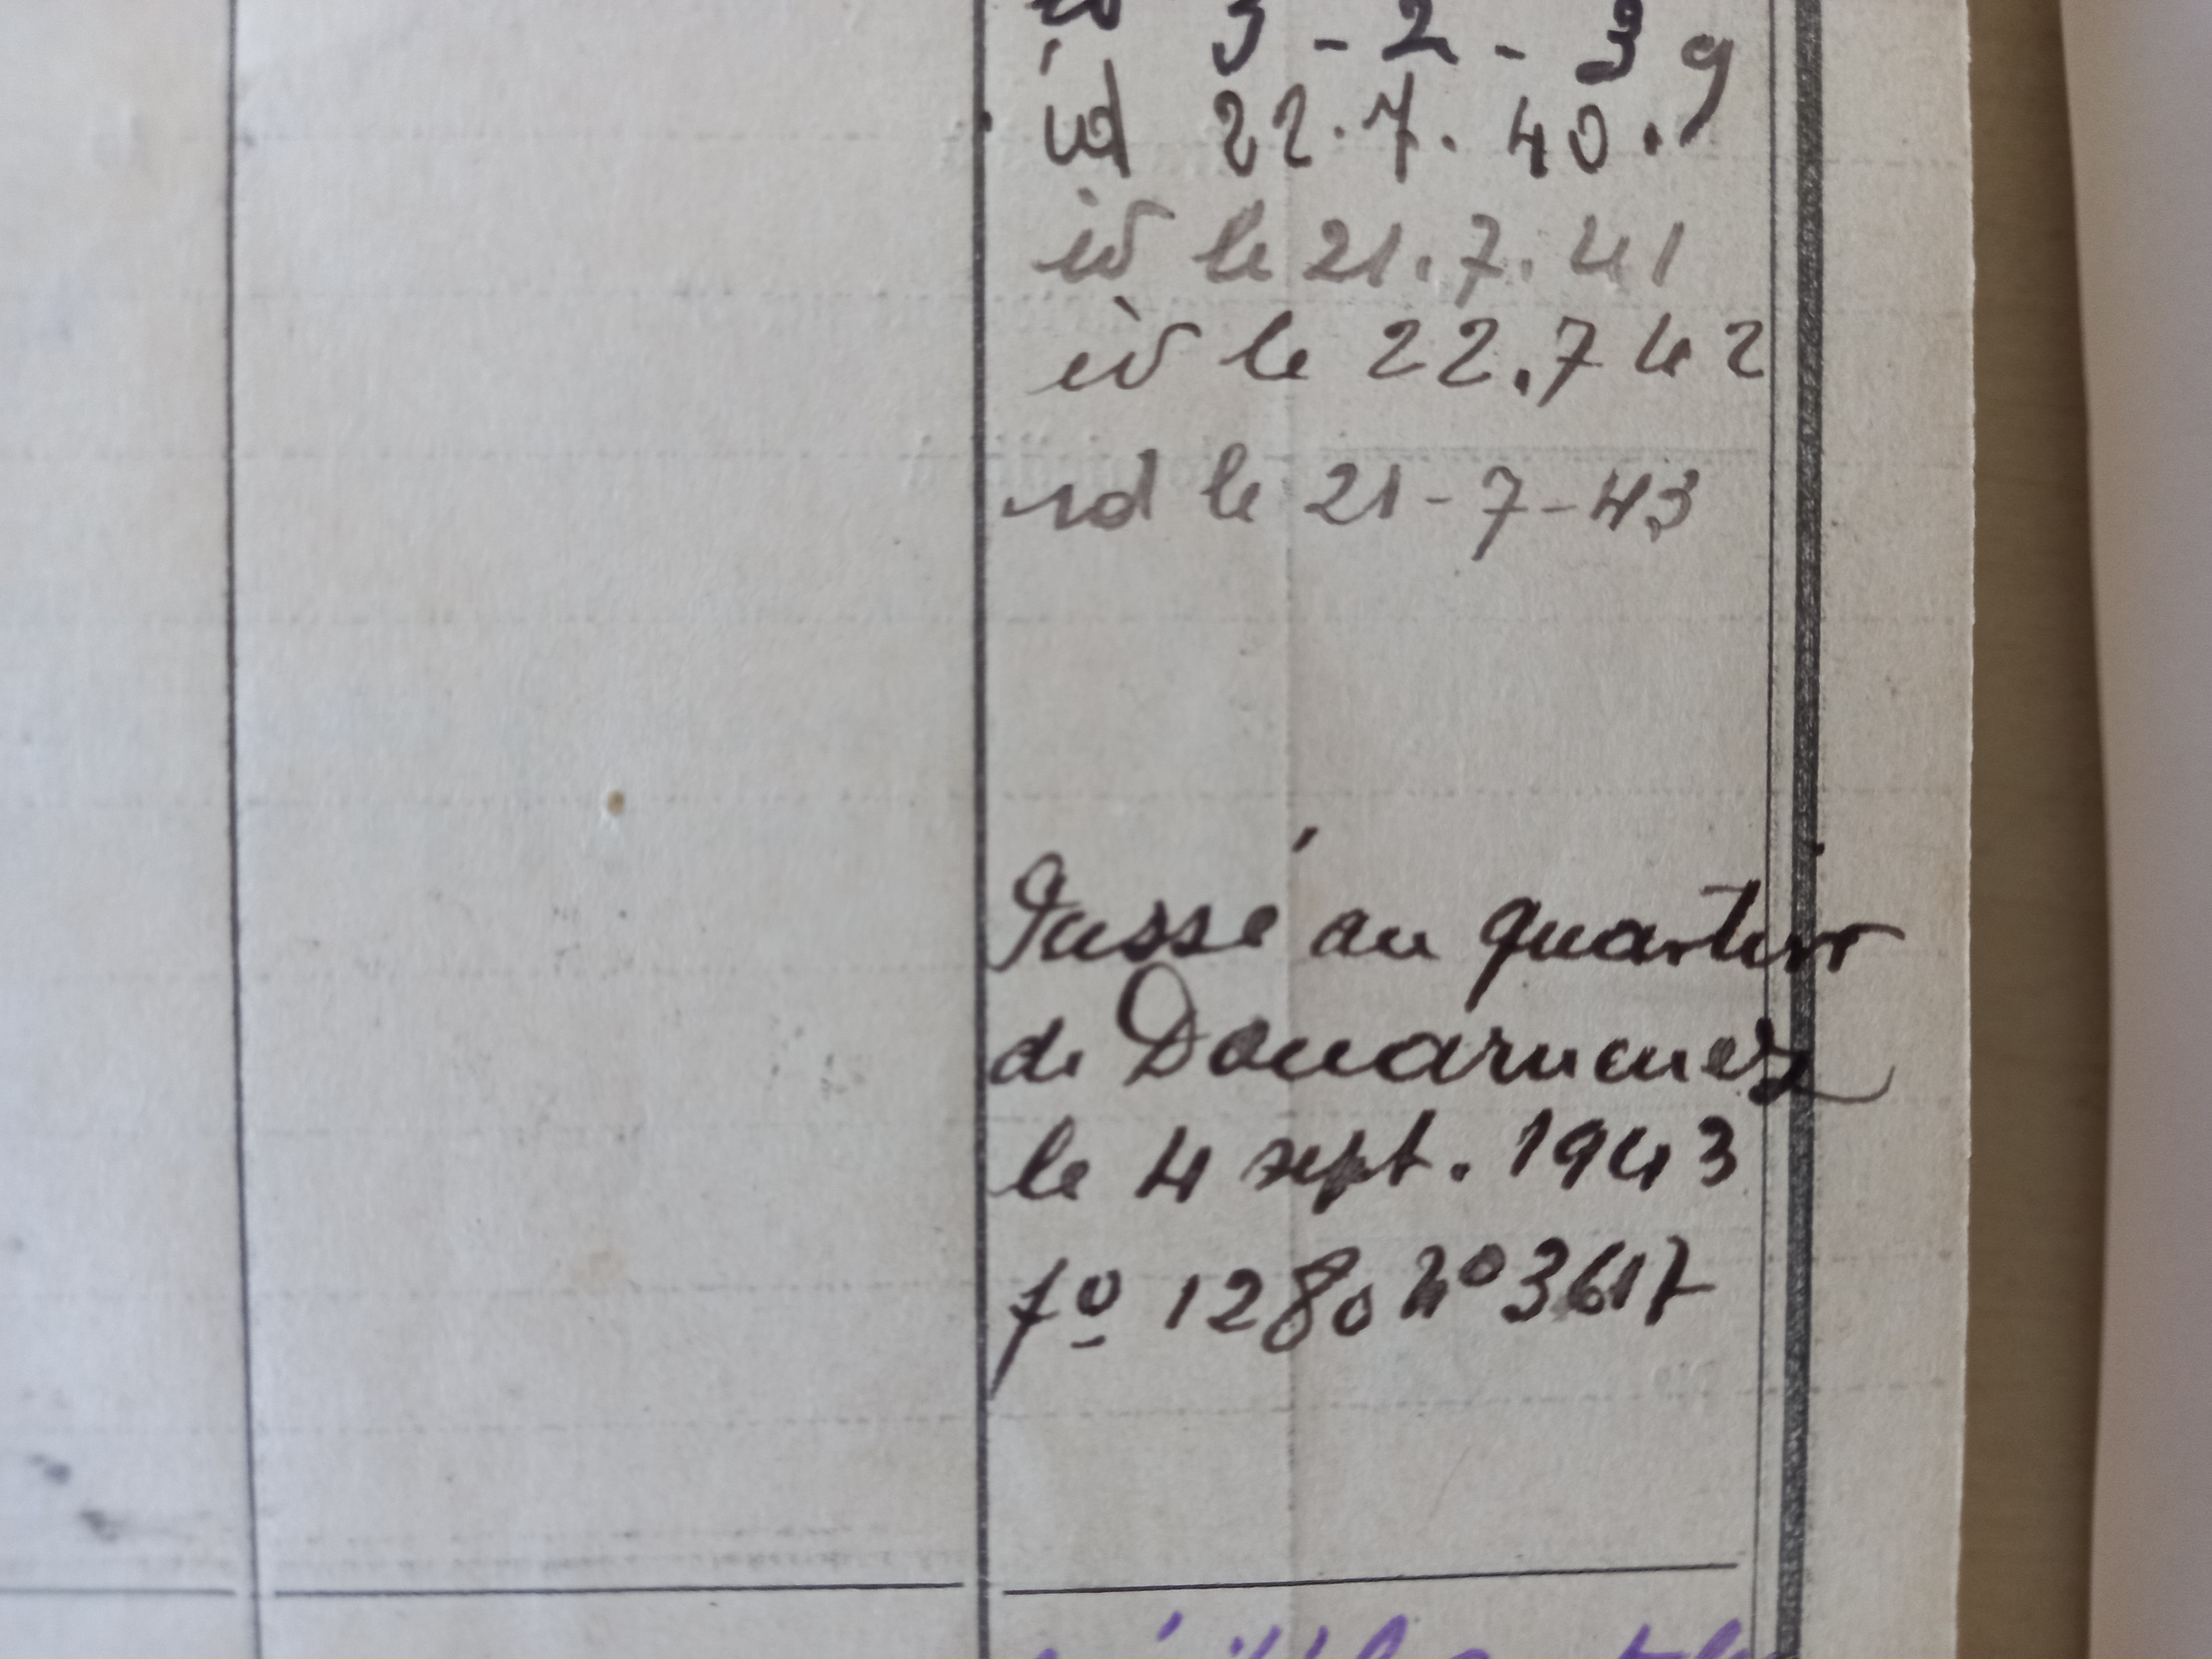 id 3 - 2 - 39
id 22.7.40.
id le 21.7.41
id le 22.7 42
id le 21-7-43
Passé au quartier
de Douarnenez
le 4 sept. 1943
fº 1280 nº 3617